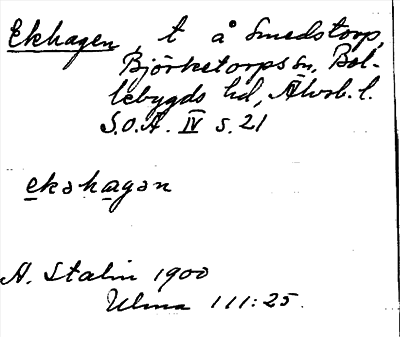 Ekhagen, t å Smedstorp,
Björketorps sn, Bol-
lebygds hd, Älvsb. l.
S.O.Ä. IV s. 21
ekəhagən
A. Stalin 1900
Ulma 111:25.